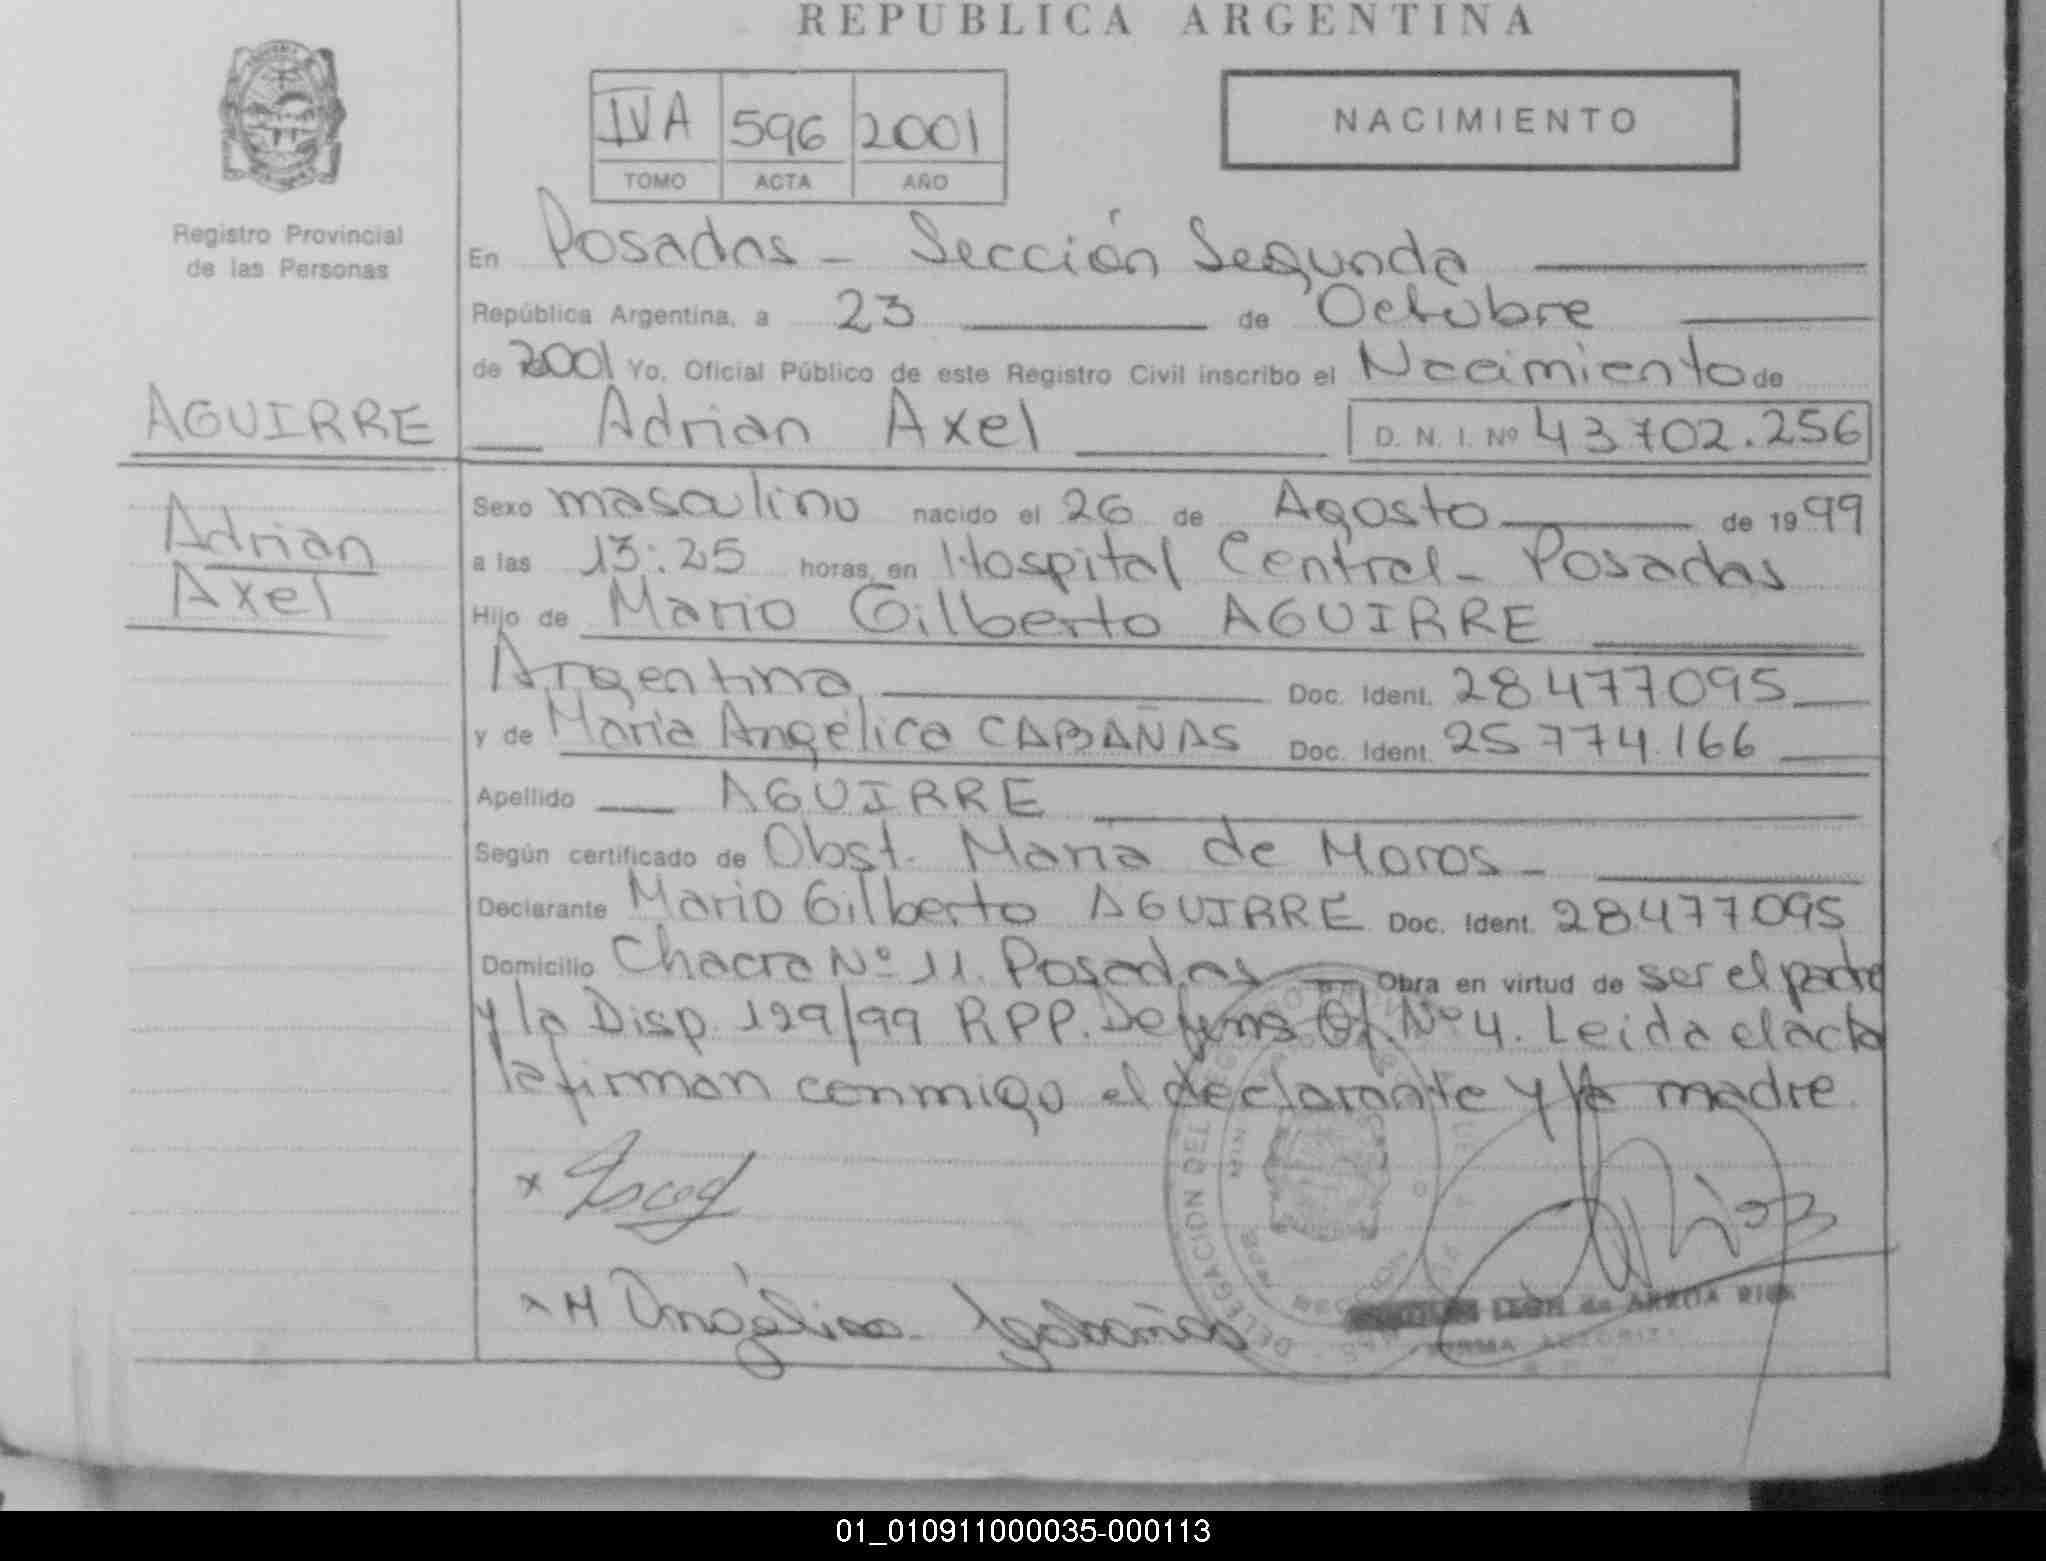 REPUBLICA ARGENTINA
IVA 596 2001
TOMO ACTA AÑO
NACIMIENTO
Registro Provincial
de las Personas
En Posadas - Sección Segunda
República Argentina, a 23 de Octubre
de 2001 Yo, Oficial Público de este Registro Civil inscribo el Nacimiento de
AGUIRRE
Adrian Axel D. N. I. Nº 43702.256
Adrian
Axel
Sexo masculino nacido el 26 de Agosto de 1999
a las 13:25 horas, en Hospital Central - Posadas
Hijo de Mario Gilberto AGUIRRE
Argentina Doc. Ident. 28477095
y de Maria Angélica CABAÑAS Doc. Ident. 25774.166
Apellido AGUIRRE
Según certificado de Obst. Maria de Moros -
Declarante Mario Gilberto AGUIRRE Doc. Ident. 28477095
Domicilio Chacra Nº 11. Posadas Obra en virtud de ser el padre
y la Disp. 129/99 RPP. Defens Of. Nº 4. Leida el acta
la firman conmigo el declarante y la madre.
DELEGACION DEL
x M Angélica Cabañas
LEON de ARRUA
FIRMA
01_010911000035-000113